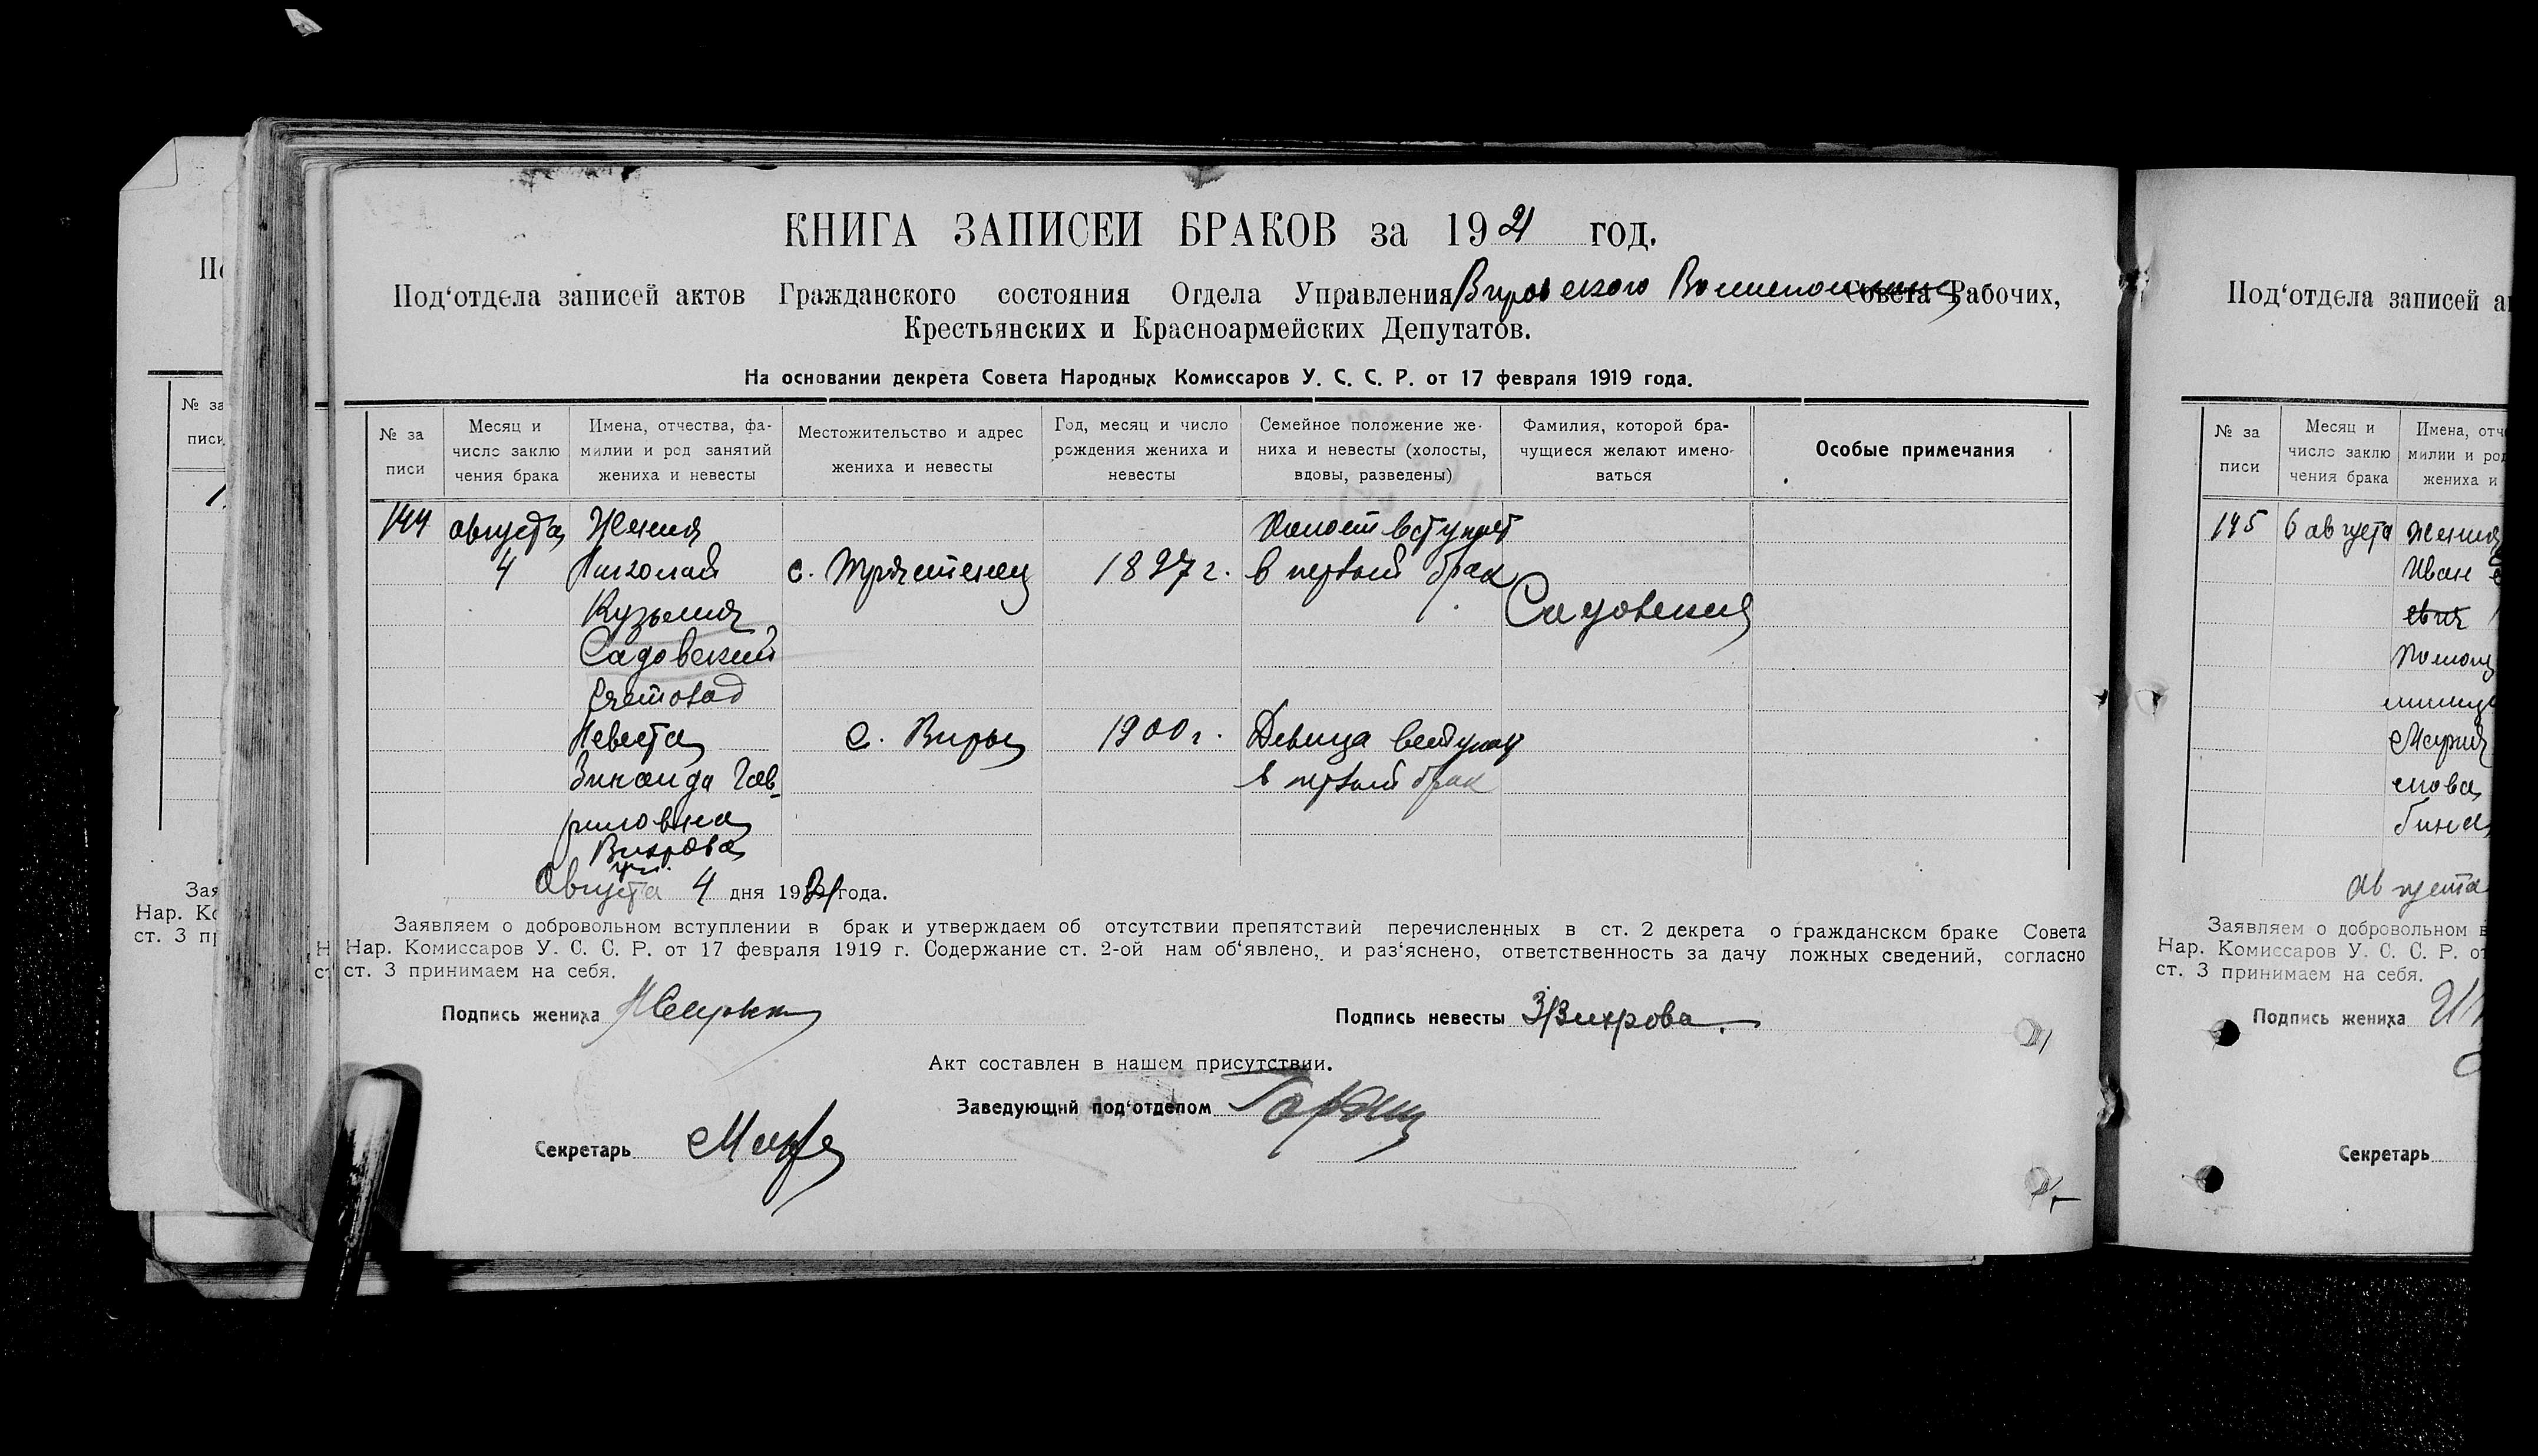 КНИГА ЗАПИСЕЙ БРАКОВ за 1921 год.
Под‘отдела записей актов Гражданского состояния Отдела Управления Вировского Волисполкома Совета Рабочих,
Крестьянских и Красноармейских Депутатов.
На основании декрета Совета Народных Комиссаров У. С. С. Р. от 17 февраля 1919 года.
№ за писи
Месяц и число заклю чения брака
Имена, отчества, фа- милии и род занятий жениха и невесты
Местожительство и адрес жениха и невесты
Год, месяц и число рождения жениха и невесты
Семейное положение же- ниха и невесты (холосты, вдовы, разведены)
Фамилия, которой бра- чущиеся желают имено- ваться
Особые примечания
144 августа Жених Холост вступает
4 Николай 1897 г. в первый брак
Кузьмич Садовский
Садовский
Счетовод
Невеста с. Виры 1900 г. Девица вступает
Зинаида Гав- в первый брак
риловна
Вихрова
Августа 4 дня 1921 года.
Заявляем о добровольном вступлении в брак и утверждаем об отсутствии препятствий перечисленных в ст. 2 декрета о гражданском браке Совета
Нар. Комиссаров У. С. С. Р. от 17 февраля 1919 г. Содержание ст. 2-ой нам об‘явлено, и раз‘яснено, ответственность за дачу ложных сведений, согласно
ст. 3 принимаем на себя.
Подпись жениха
Подпись невесты ЗВихрова
Акт составлен в нашем присутствии.
Заведующий под‘отделом
Секретарь
Под‘отдела записей а
№ за писи
Месяц и число заклю чения брака
Имена, отч
милии и род
жениха и
145 6 августа Жених
Иван
евич
Мария
августа
Заявляем о добровольном в
Нар. Комиссаров У. С. С. Р. от
ст. 3 принимаем на себя.
Подпись жениха
Секретарь